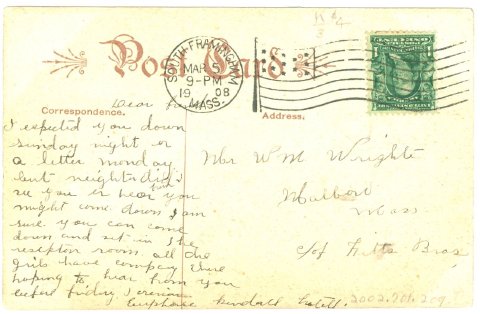 Post Card
SOUTH FRAMINGHAM
MAR
9-PM
1908
MASS.
Correspondence.
Address.
Dear
I expected you down
sunday night or
a letter monday
but neighter did I
see you or hear you
might come down I am
sure you can come
down and sit in the
reception room all the
girls have company
hoping to hear from you
before friday I remain
Kendall Hotell.
Mr W M Wright
Mass
c/o Fitts Bros
2002.701.209